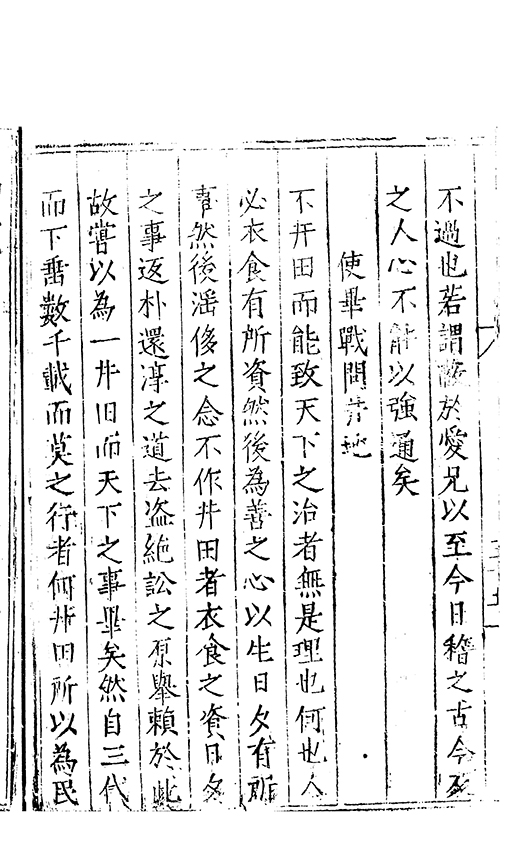 不過也若謂蔽於愛兄以至今日稽之古今及
之人心不能以強通矣
使畢戰問井地
不井田而能致天下之治者無是理也何也人
必衣食有所資然後為善之心以生日夕有所
事然後滛侈之念不作井田者衣食之資日夕
之事返朴還淳之道去盗絶訟之原舉賴於此
故嘗以為一井田而天下之事畢矣然自三代
而下垂數千載而莫之行者何井田所以為民